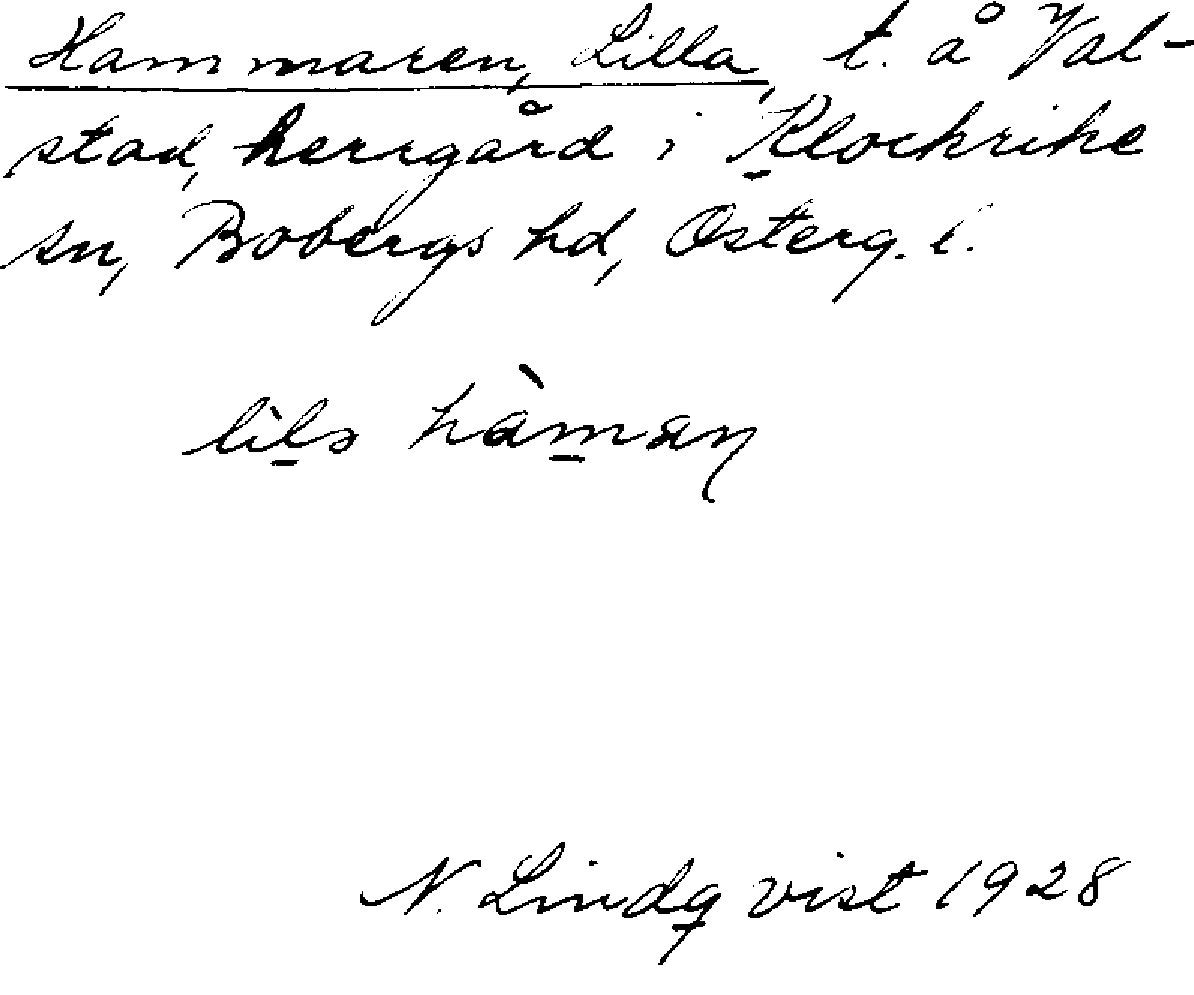 Hammaren, Lilla, t. å Val-
stad, herrgård i Klockrike
sn, Bobergs hd, Österg. l.
lìlа hàman
N. Lindqvist 1928